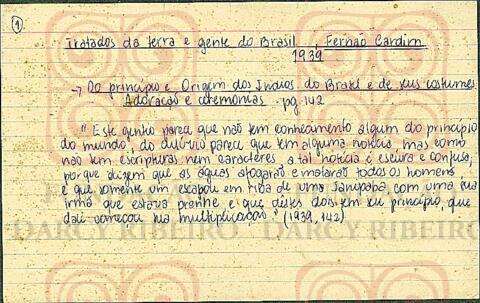 1.
Tratados da terra e gente do Brasil, Fernão Cardim
1939
→ Do princípio e Origem dos Índios do Brasil e de seus costumes
Adoração e ceremonias. pg. 142
"Este gentio parece que não tem conhecimento algum do princípio
do mundo, do dilúvio parece que tem alguma notícia, mas como
não tem escripturas nem caracteres, a tal notícia é escura e confusa,
porque dizem que as águas afogarão e matarão todos os homens
e que somente um escapou em riba de uma Janipaba, com uma sua
irmã que estava prenhe e que destes dois tem seu princípio, que
dali começou sua multiplicação." (1939, 142)
DARCY RIBEIRO
DARCY RIBEIRO